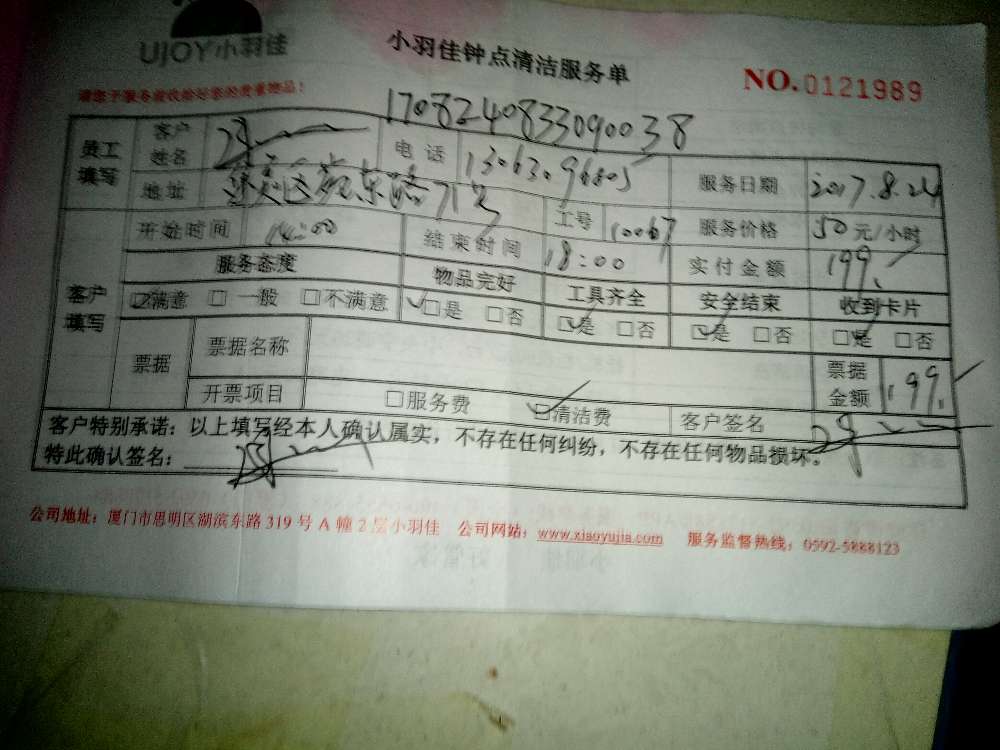 UJOY小羽佳
小羽佳钟点清洁服务单
NO.0121989
1708240833090038
员工填写 客户姓名 电话 服务日期 2017.8.24
地址 东路71号 工号 10067 服务价格 50元/小时
开始时间 14:00 结束时间 18:00 实付金额 199.
客户填写 服务态度 物品完好 工具齐全 安全结束 收到卡片
☑满意 □一般 □不满意 ☑是 □否 ☑是 □否 ☑是 □否 ☑是 □否
票据 票据名称 票据金额 199.
开票项目 □服务费 ☑清洁费 客户签名
客户特别承诺：以上填写经本人确认属实，不存在任何纠纷，不存在任何物品损坏。
特此确认签名：
公司地址：厦门市思明区湖滨东路 319 号 A 幢 2 层小羽佳 公司网站：www.xiaoyujia.com 服务监督热线：0592-5888123